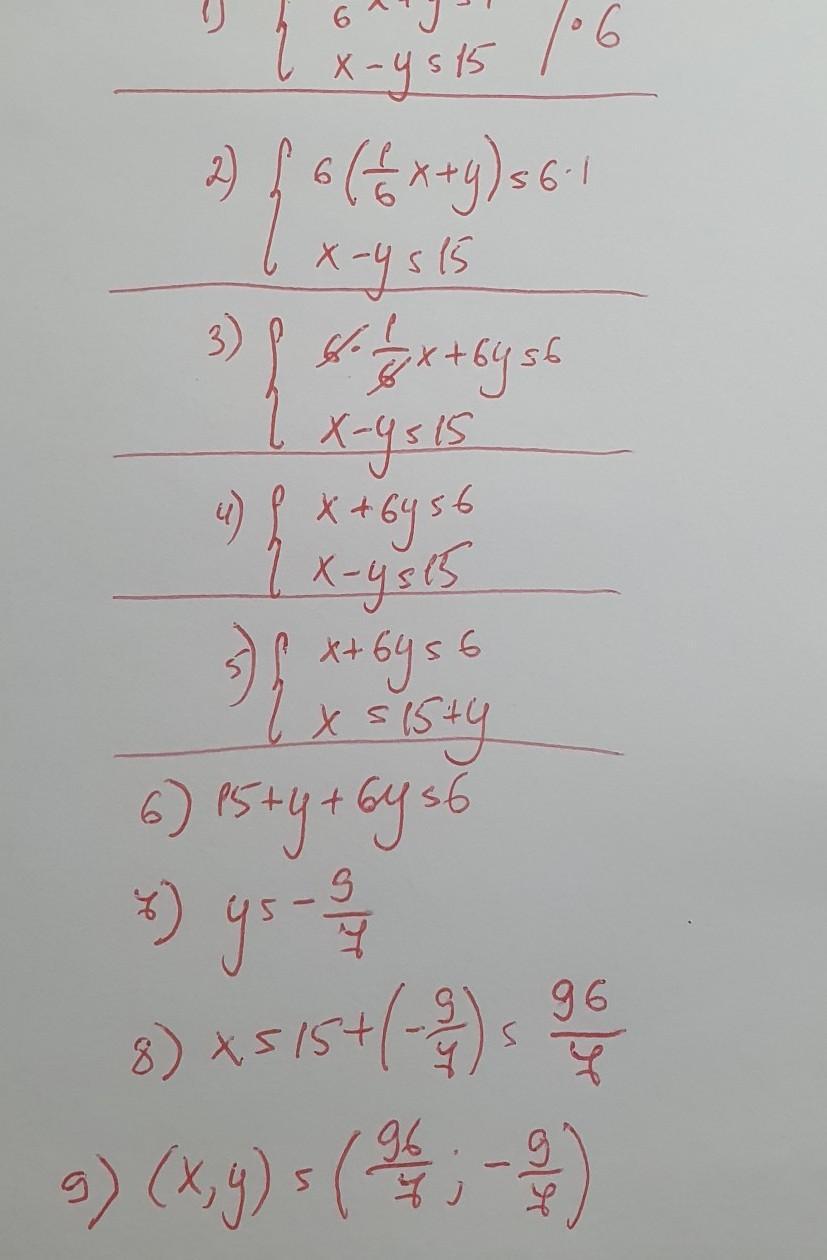 1) { 1/6 x+y=1 /·6
x-y=15
2) { 6(1/6 x+y)=6·1
x-y=15
3) { 6·1/6 x+6y=6
x-y=15
4) { x+6y=6
x-y=15
5) { x+6y=6
x=15+y
6) 15+y+6y=6
7) y=-9/7
8) x=15+(-9/7)=96/7
9) (x,y)=(96/7;-9/7)